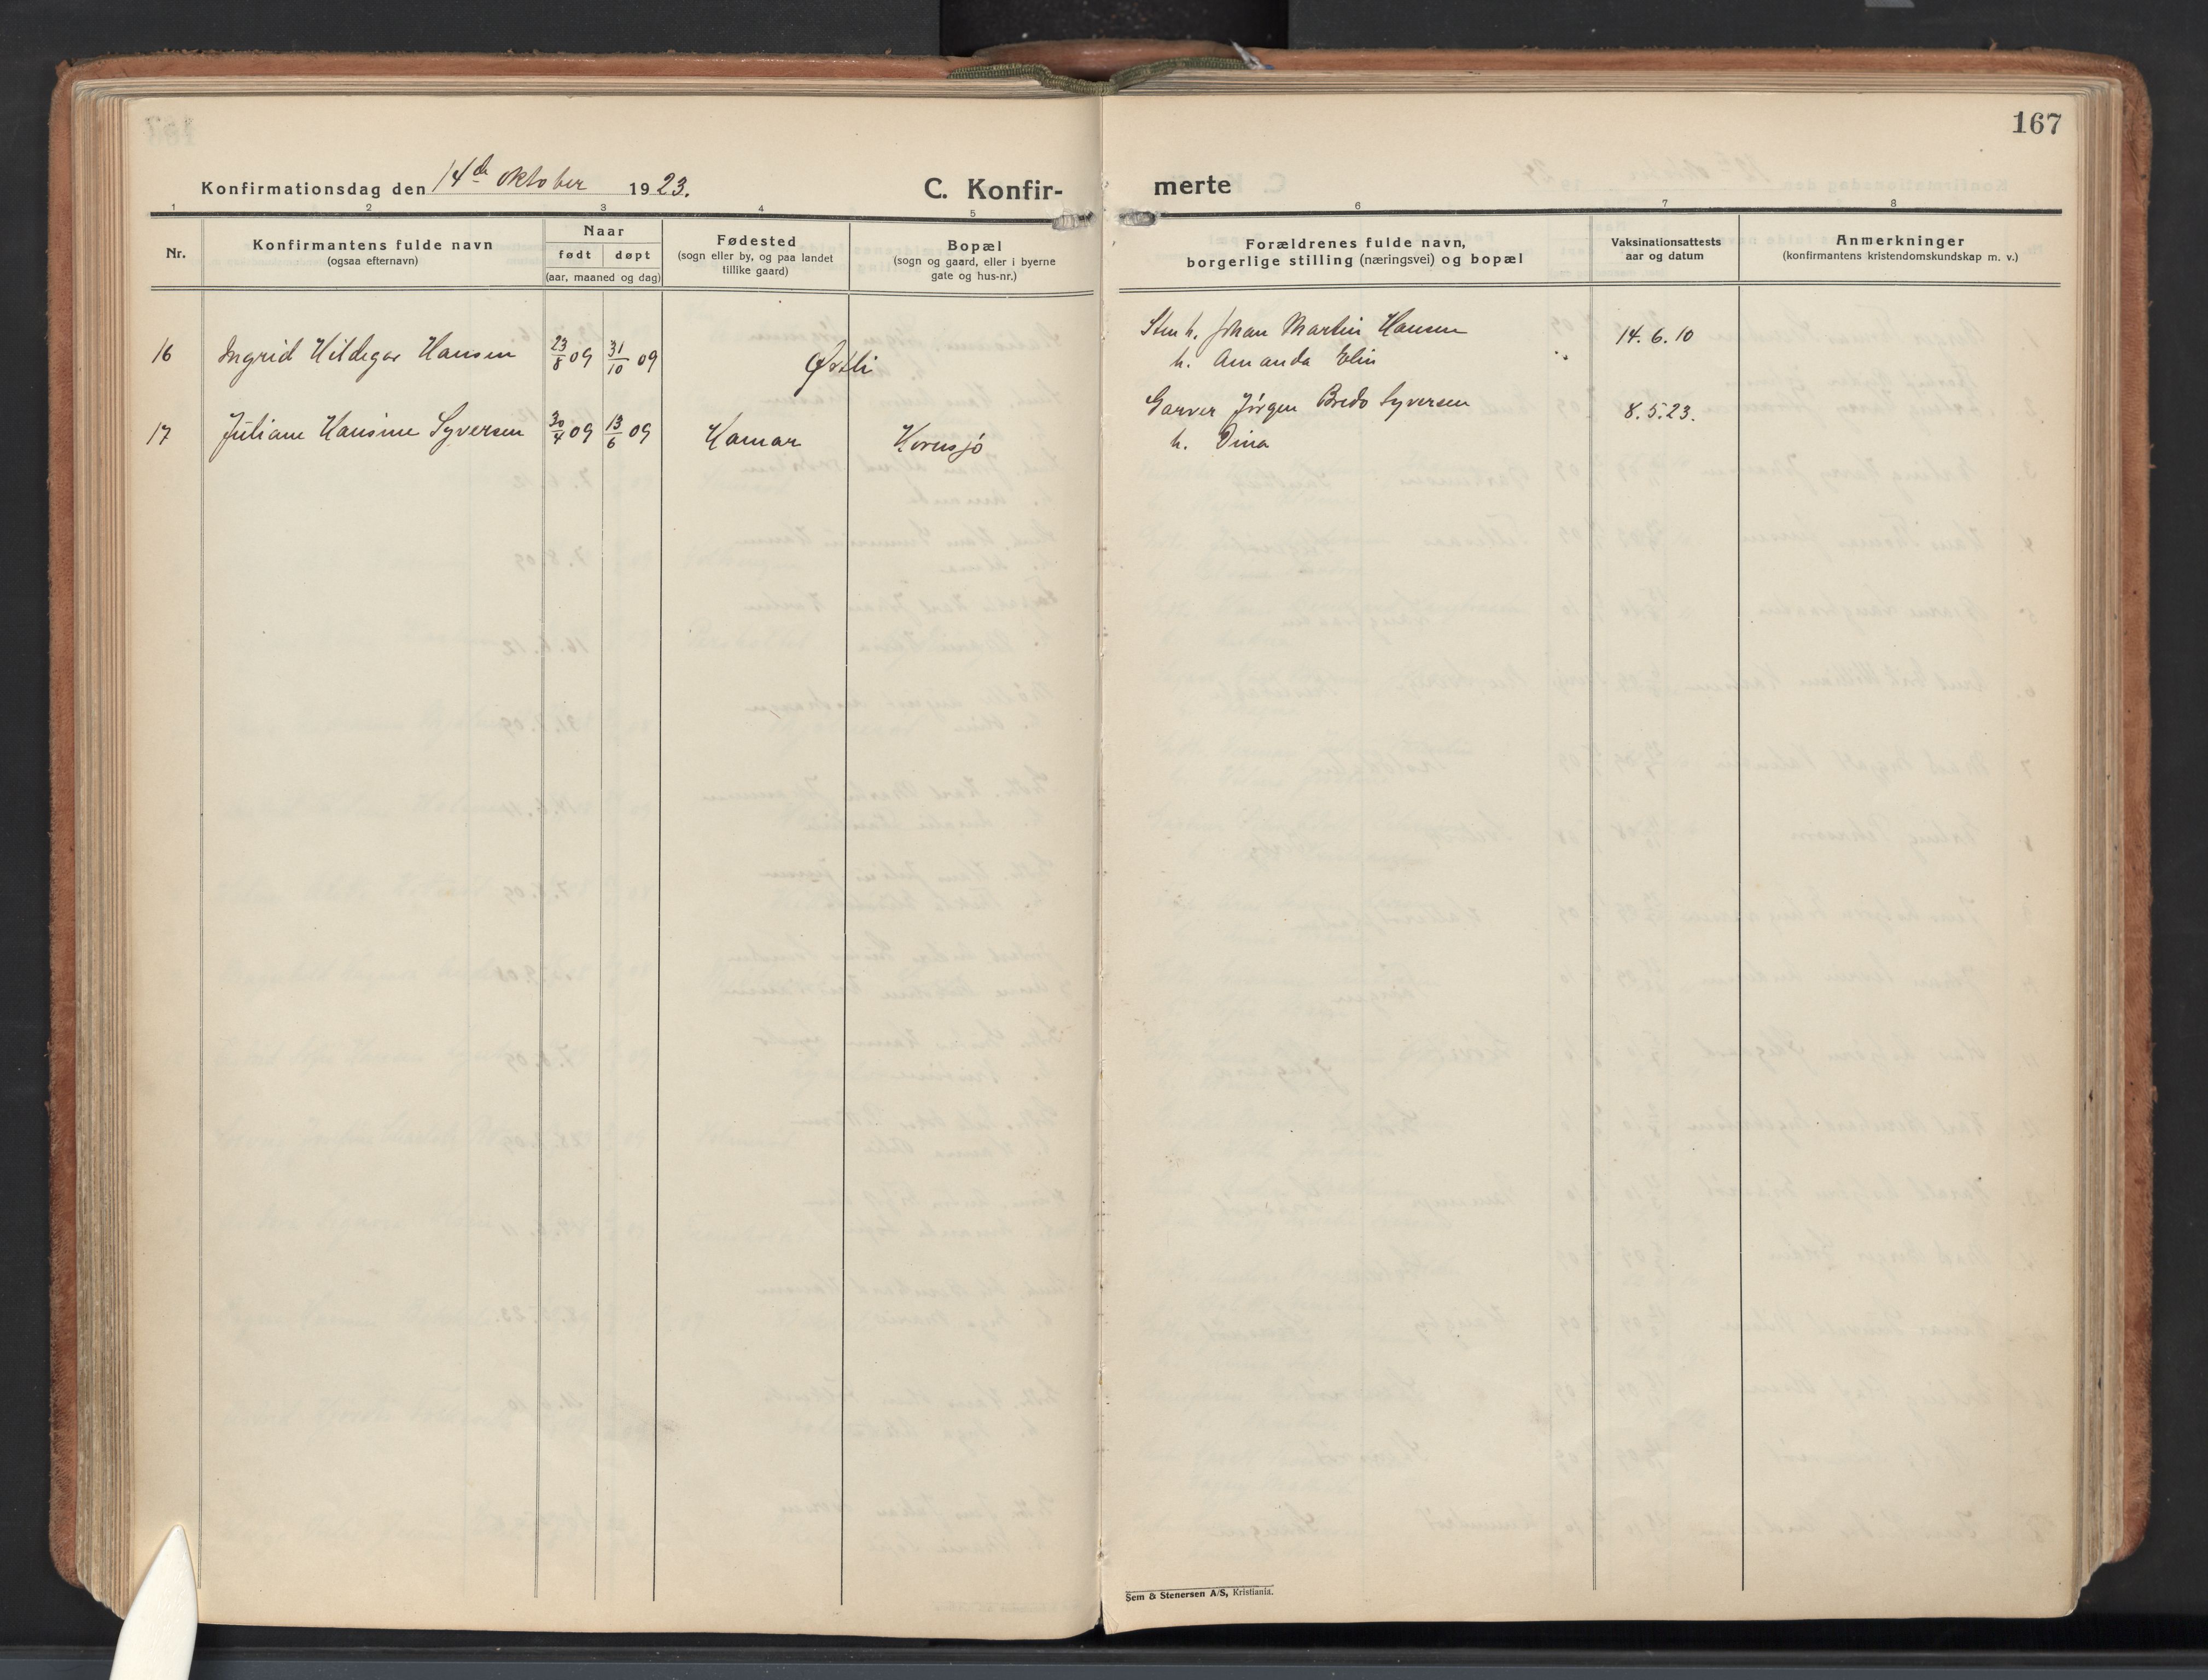 167
Konfirmationsdag den 14de oktober 1923.
C. Konfir-merte
1 2 3 4 5 6 7 8
Nr.
Konfirmantens fulde navn
(ogsaa efternavn)
Naar
født døpt
(aar, maaned og dag)
Fødested
(sogn eller by, og paa landet
tillike gaard)
Bopæl
(sogn og gaard, eller i byerne
gate og hus-nr.)
Forældrenes fulde navn,
borgerlige stilling (næringsvei) og bopæl
Vaksinationsattests
aar og datum
Anmerkninger
(konfirmantens kristendomskundskap m. v.)
16 Ingrid Hildegar Hansen 23/8 09 31/10 09 Østli
Stenh. Johan Martin Hansen
h. Amanda Elin
14. 6. 10
17 Juliane Hansine Syversen 30/4 09 13/6 09 Hamar Kornsjø
Garver Jörgen Bredo Syversen
h. Dina
8. 5. 23.
Sem & Stenersen A/S, Kristiania.